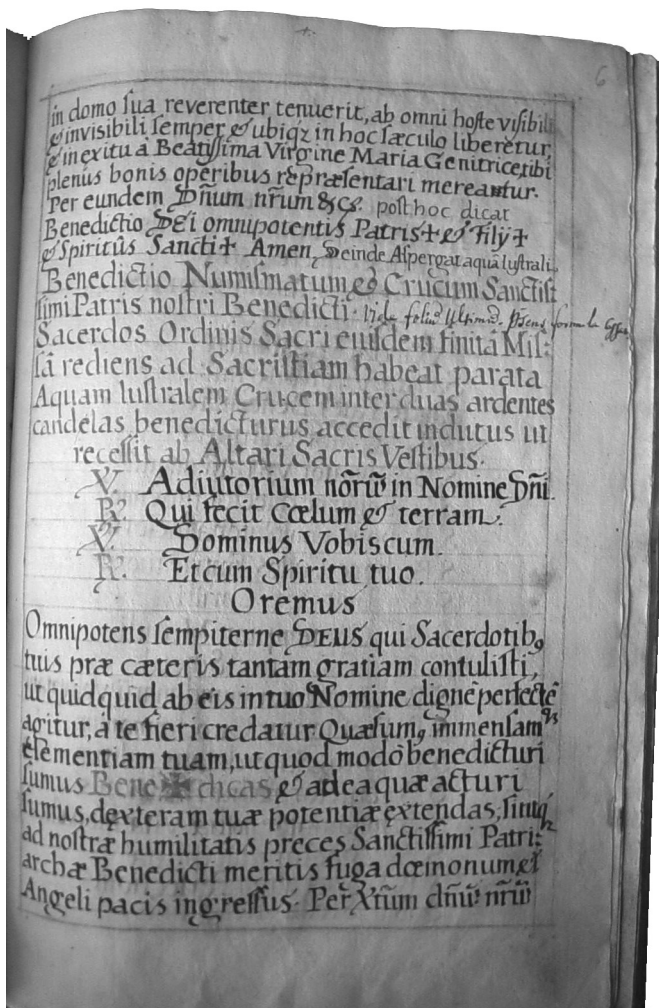 6
in domo sua reverenter tenuerit, ab omni hoste visibili
& invisibili semper & ubiqz in hoc sæculo liberetur,
& in exitu à Beatissima Virgine Maria Genitrice tibi
plenus bonis operibus repræsentari mereantur.
Per eundem Dñum nr̃um &c. post hoc dicat
Benedictio DEi omnipotentis Patris ✝ & Filÿ ✝
& Spiritûs Sancti ✝ Amen, Deinde Aspergat aquâ lustrali,
Benedictio Numismatum & Crucum Sanctiss
simi Patris nostri Benedicti. Vide foliũ ultimũ.
Sacerdos Ordinis Sacri eiusdem finitâ Mis:
sâ rediens ad Sacristiam habeat parata
Aquam lustralem Crucem inter duas ardentes
candelas benedicturus accedit indutus ut
recessit ab Altari Sacris Vestibus.
V. Adiutorium nõrũ in Nomine Dñi.
R. Qui fecit Cœlum & terram.
V. Dominus Vobiscum.
R. Et cum Spiritu tuo.
Oremus
Omnipotens sempiterne DEUS qui Sacerdotibꝯ
tuis præ cæteris tantam gratiam contulisti,
ut quidquid ab eis in tuo Nomine dignè perfectè
agitur, à te fieri credatur Quæsumꝯ immensam
clementiam tuam, ut quod modò benedicturi
sumus Bene ✠ dicas & ad ea quæ acturi
sumus, dexteram tuæ potentiæ extendas, sintqz
ad nostræ humilitatis preces Sanctissimi Patri:
archæ Benedicti meritis fuga dœmonum et
Angeli pacis ingressus. Per Xr̃um dm̃ũ nr̃ũ